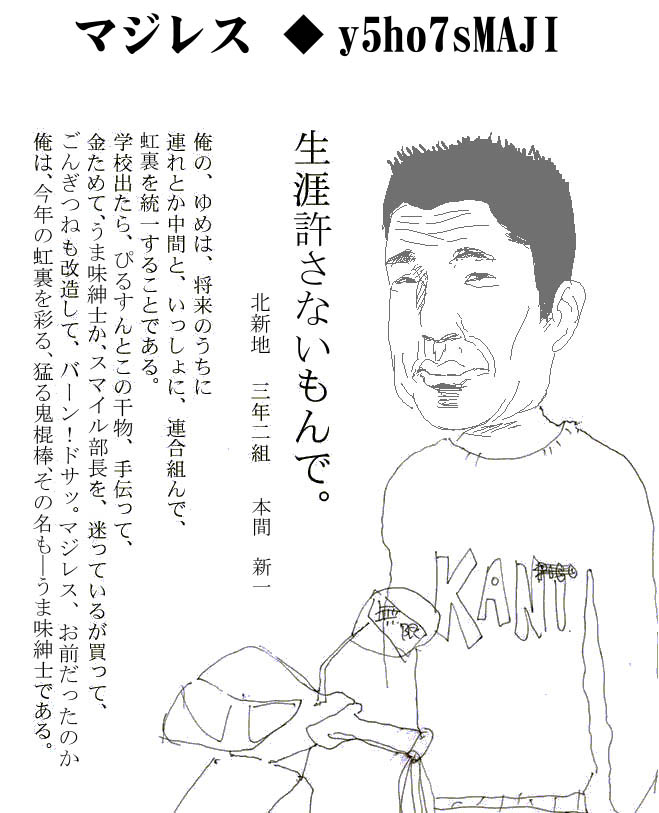 マジレス ◆ y5ho7sMAJI
生涯許さないもんで。
北新地 三年二組 本間 新一
俺の、ゆめは、将来のうちに
連れとか中間と、いっしょに、連合組んで、
虹裏を統一することである。
学校出たら、ぴるすんとこの干物、手伝って、
金ためて、うま味紳士か、スマイル部長を、迷っているが買って、
ごんぎつねも改造して、バーン！ドサッ。マジレス、お前だったのか
俺は、今年の虹裏を彩る、猛る鬼棍棒、その名も―うま味紳士である。
KANTO
無